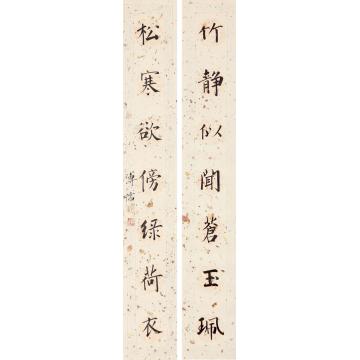 竹静似聞蒼玉珮
松寒欲傍緑荷衣
溥儒